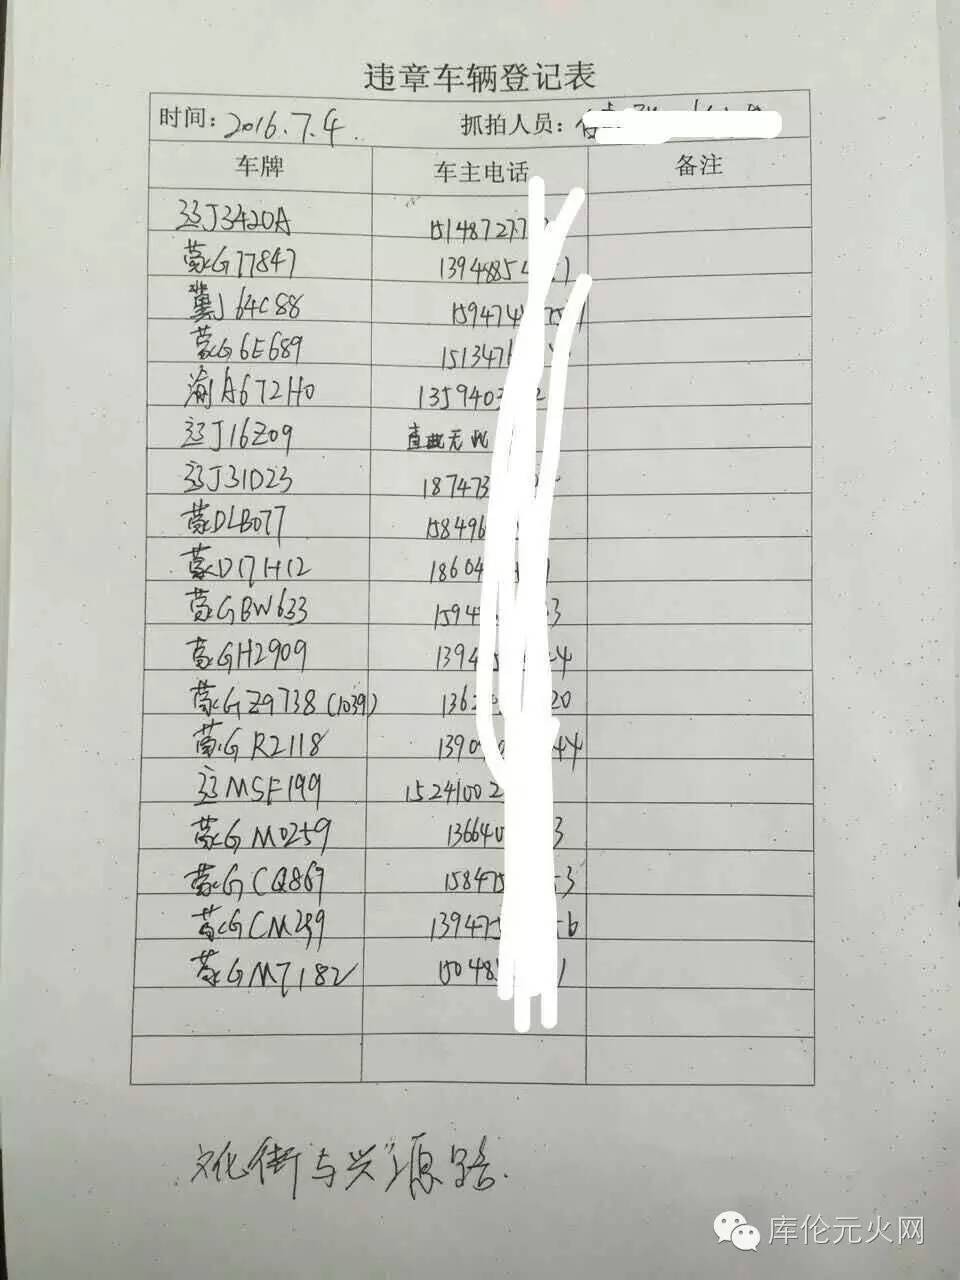 违章车辆登记表
时间：2016.7.4. 抓拍人员：
车牌 车主电话 备注
辽J3420A 15148727
蒙G77847 13948854
冀J64C88 159474
蒙G6E689 151347
渝A672H0 135940
辽J16Z09 查此无此
辽J31D23 187473
蒙DLB077 158496
蒙D17H12 18604
蒙GBW633 1594 3
蒙GH2909 1394 4
蒙GZ9738(1039) 136 20
蒙GR2118 1390 44
辽MSF199 15241002
蒙GM0259 13664 3
蒙GCQ867 158475 3
蒙GCM299 139475 56
蒙GM7182 15048 1
文化街与兴源路.
库伦元火网